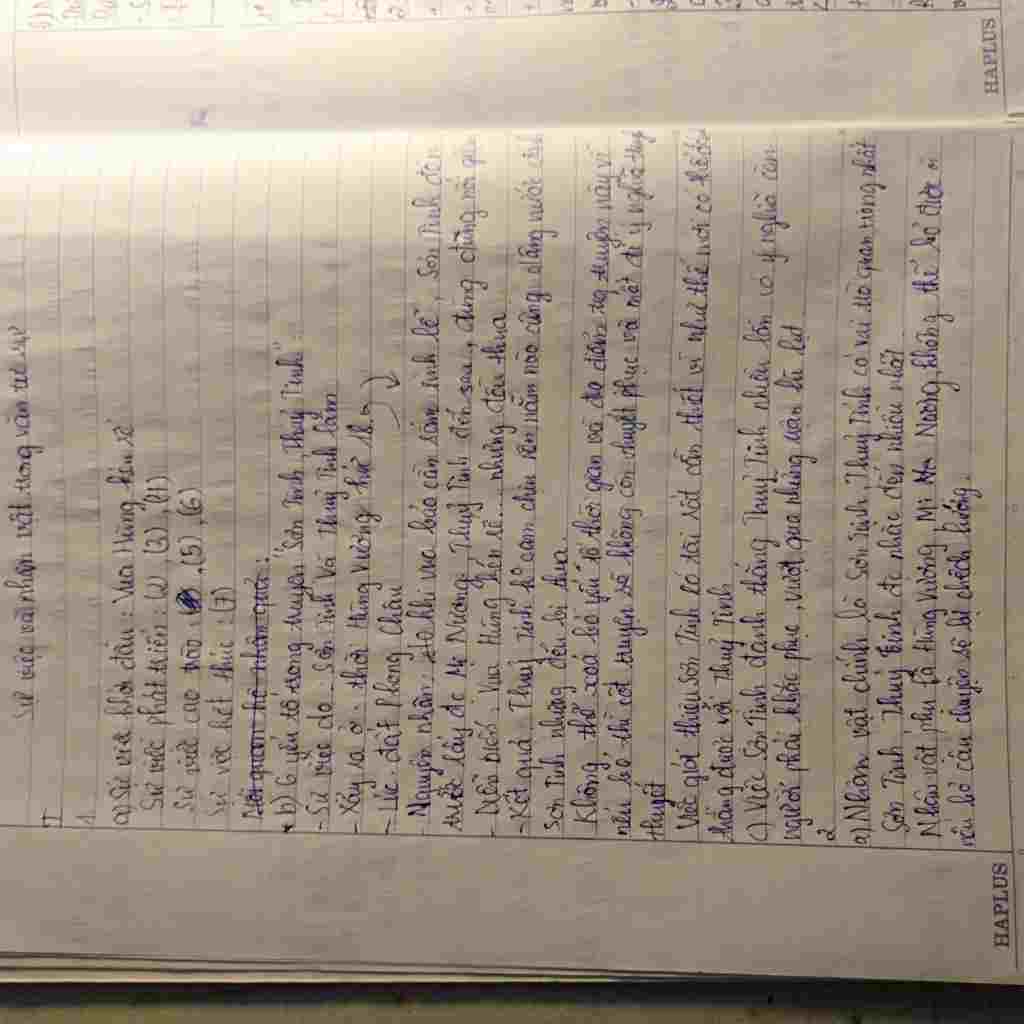 Sự việc và nhân vật trong văn tự sự
I
1
a) Sự việc khởi đầu: Vua Hùng kén rể
Sự việc phát triển: (2), (3), (4)
Sự việc cao trào (5), (6)
Sự việc kết thúc: (7)
b) 6 yếu tố trong truyện "Sơn Tinh Thuỷ Tinh":
- Sự việc do Sơn Tinh và Thuỷ Tinh làm
- Xảy ra ở: thời Hùng Vương thứ
- Lúc: đất Phong Châu
- Nguyên nhân: khi vua báo cần sắm sính lễ, Sơn Tinh đến
trước lấy đc Mị Nương, Thuỷ Tinh đến sau, đùng đùng nổi
- Diễn biến: Vua Hùng kén rể... nhưng đều thua
- Kết quả: Thuỷ Tinh năm nào cũng dâng nước
Sơn Tinh nhưng đều bị thua.
Không thể xoá bỏ yếu tố thời gian và địa điểm trg truyện này vì
nếu bỏ thì cốt truyện sẽ không còn thuyết phục và mất đi ý nghĩa
thuyết
Việc giới thiệu Sơn Tinh có tài rất cần thiết vì như thế mới có thể
thắng được với Thuỷ Tinh
c) Việc Sơn Tinh đánh thắng Thuỷ Tinh nhiều lần có ý nghĩa con
người phải khắc phục, vượt qua những nạn lũ lụt
2
a) Nhân vật chính là Sơn Tinh, Thuỷ Tinh có vai trò quan trọng nhất
Sơn Tinh, Thuỷ Tinh đc nhắc đến nhiều nhất
Nhân vật phụ là Hùng Vương, Mị Nương, không thể bỏ được vì
nếu bỏ câu chuyện sẽ bị chệch hướng.
HAPLUS
HAPLUS